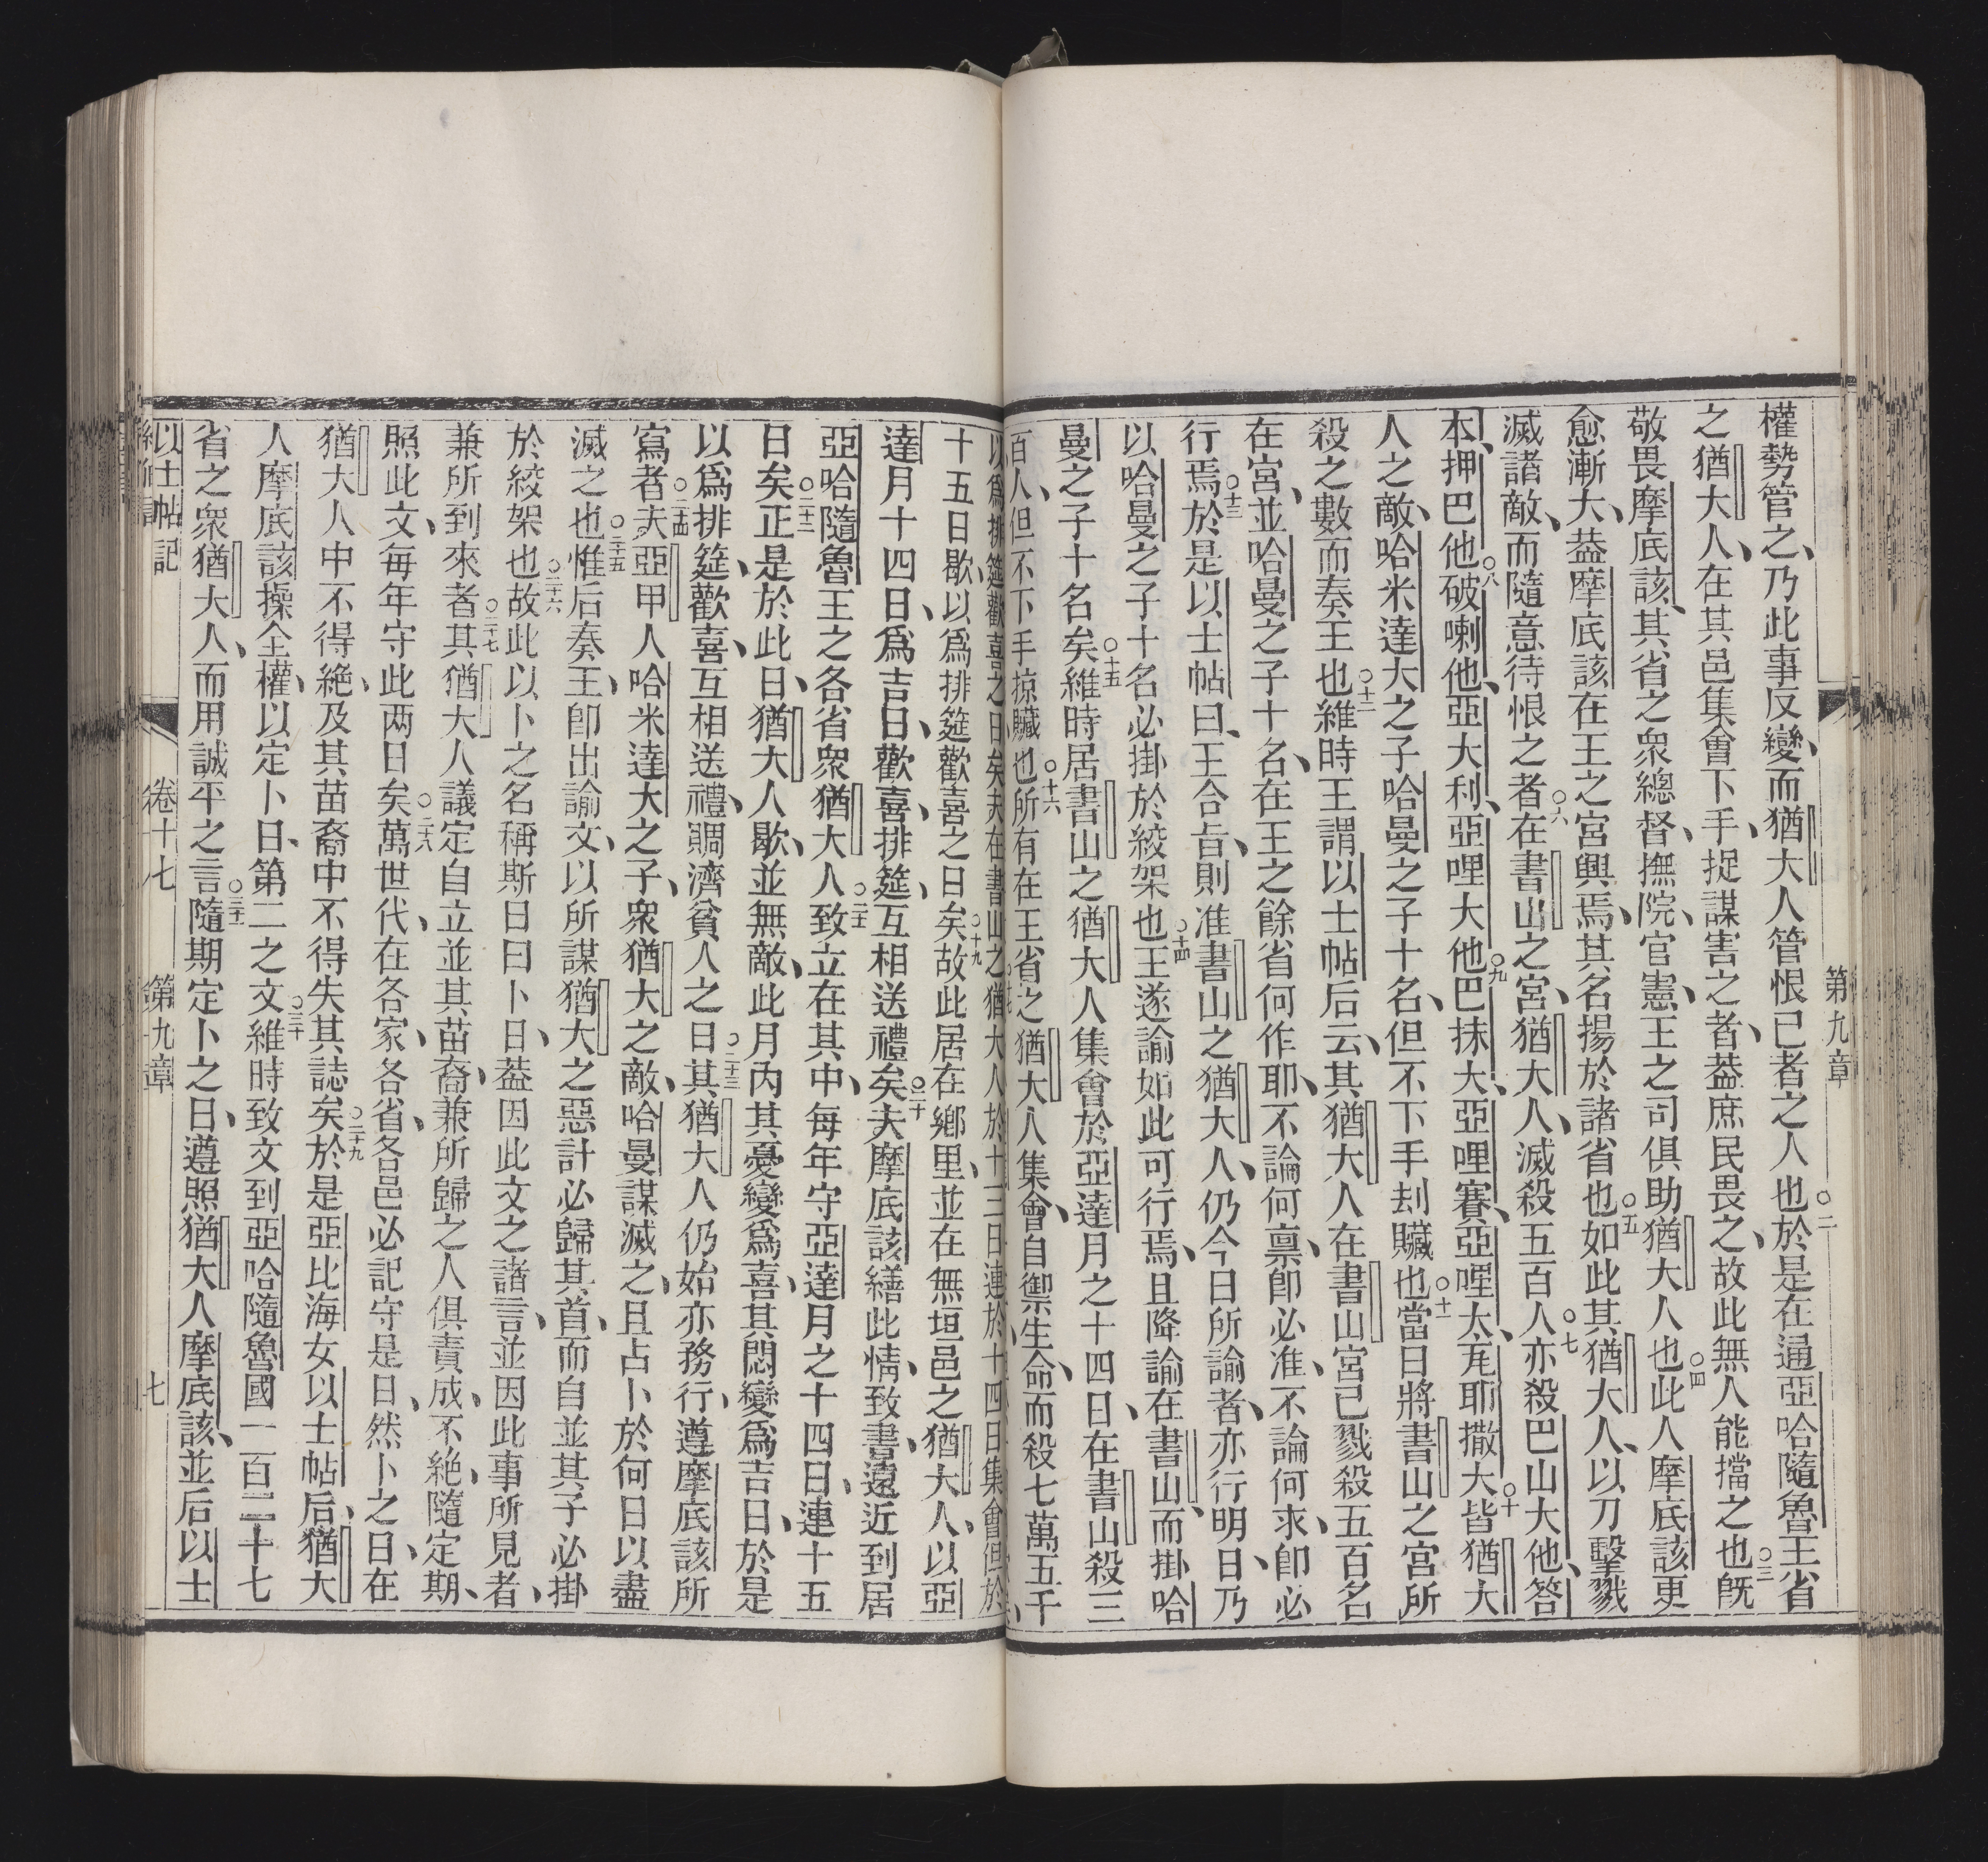 第九章
權勢管之、乃此事反變、而猶大人管恨己者之人也○二於是在通亞哈隨魯王省
之猶大人、在其邑集會下手、捉謀害之者、葢庶民畏之、故此無人能擋之也○三旣
敬畏摩底該、其省之衆總督、撫院、官憲、王之司俱助猶大人也○四此人摩底該更
愈漸大、葢摩底該在王之宮興焉、其名揚於諸省也○五如此其猶大人、以刀擊戮
滅諸敵、而隨意待恨之者○六在書山之宮、猶大人、滅殺五百人○七亦殺巴山大他、答
本、押巴他○八破喇他、亞大利、亞哩大他○九巴抹大、亞哩賽、亞哩大、洟耶撒大○十皆猶大
人之敵、哈米達大之子哈曼之子十名、但不下手刦贓也○十一當日將書山之宮所
殺之數而奏王也○十二維時王謂以士帖后云、其猶大人在書山宮已戮殺五百名
在宮、並哈曼之子十名、在王之餘省何作耶、不論何禀、卽必准、不論何求、卽必
行焉○十三於是以士帖曰、王合旨、則准書山之猶大人、仍今日所諭者、亦行明日、乃
以哈曼之子十名必掛於絞架也○十四王遂諭如此可行焉、且降諭在書山、而掛哈
曼之子十名矣○十五維時居書山之猶大人集會於亞達月之十四日、在書山殺三
百人、但不下手掠贓也○十六所有在王省之猶大人集會、自禦生命、而殺七萬五千
以爲排筵歡喜之日矣夫在書山之猶大人於十三日連於十四日集會但於
十五日歇、以爲排筵歡喜之日矣○十九故此居在鄉里、並在無垣邑之猶大人、以亞
達月十四日、爲吉日、歡喜、排筵、互相送禮矣○二十夫摩底該繕此情、致書、遠近到居
亞哈隨魯王之各省衆猶大人○二十一致立在其中、每年守亞達月之十四日、連十五
日矣○二十二正是於此日、猶大人歇、並無敵、此月內其憂變爲喜、其悶變爲吉日、於是
以爲排筵、歡喜、互相送禮、賙濟貧人之日○二十三其猶大人仍始亦務行、遵摩底該所
寫者○二十四夫亞甲人哈米達大之子、衆猶大之敵、哈曼謀滅之、且占卜於何日以盡
滅之也○二十五惟后奏王、卽出諭文、以所謀猶大之惡計必歸其首、而自並其子必掛
於絞架也○二十六故此以卜之名稱斯日曰卜日、葢因此文之諸言、並因此事所見者、
兼所到來者○二十七其猶大人議定自立並其苗裔、兼所歸之人俱責成、不絕、隨定期、
照此文、每年守此两日矣○二十八萬世代、在各家、各省、各邑必記守是日、然卜之日、在
猶大人中不得絕、及其苗裔中不得失其誌矣○二十九於是亞比海女以士帖后、猶大
人摩底該操全權、以定卜日、第二之文○三十維時致文到亞哈隨魯國一百二十七
省之衆猶大人、而用誠平之言○三十一隨期定卜之日、遵照猶大人摩底該、並后以士
以士帖記 卷十七 第九章 七